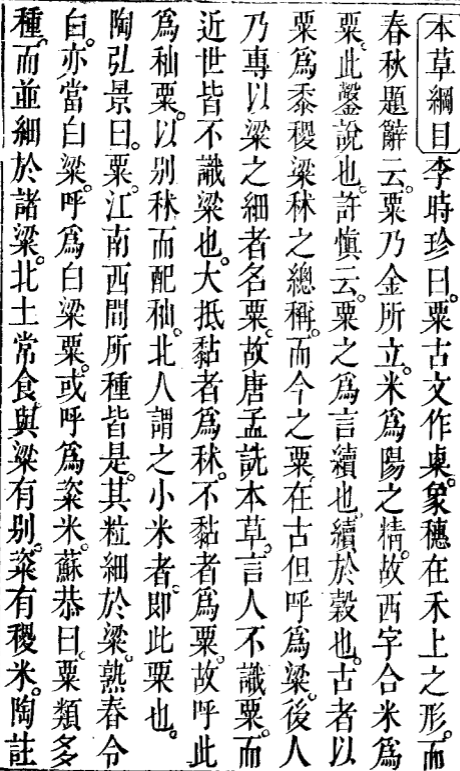 本草綱目 李時珍曰。粟古文作㮚。象穗在禾上之形。而
春秋題辭云。粟乃金所立。米爲陽之精。故西字合米爲
粟。此鑿說也。許慎云。粟之爲言續也。續於穀也。古者以
粟爲黍稷粱秫之總稱。而今之粟。在古但呼爲粱。後人
乃專以粱之細者名粟。故唐孟詵本草。言人不識粟。而
近世皆不識粱也。大抵黏者爲秫。不黏者爲粟。故呼此
爲秈粟。以别秫而配秈。北人謂之小米者。即此粟也。
陶弘景曰。粟。江南西間所種皆是。其粒細於粱。熟舂令
白。亦當白粱。呼爲白粱粟。或呼爲粢米。蘇恭曰。粟類多
種。而並細於諸粱。北土常食。與粱有别。粢有稷米。陶註